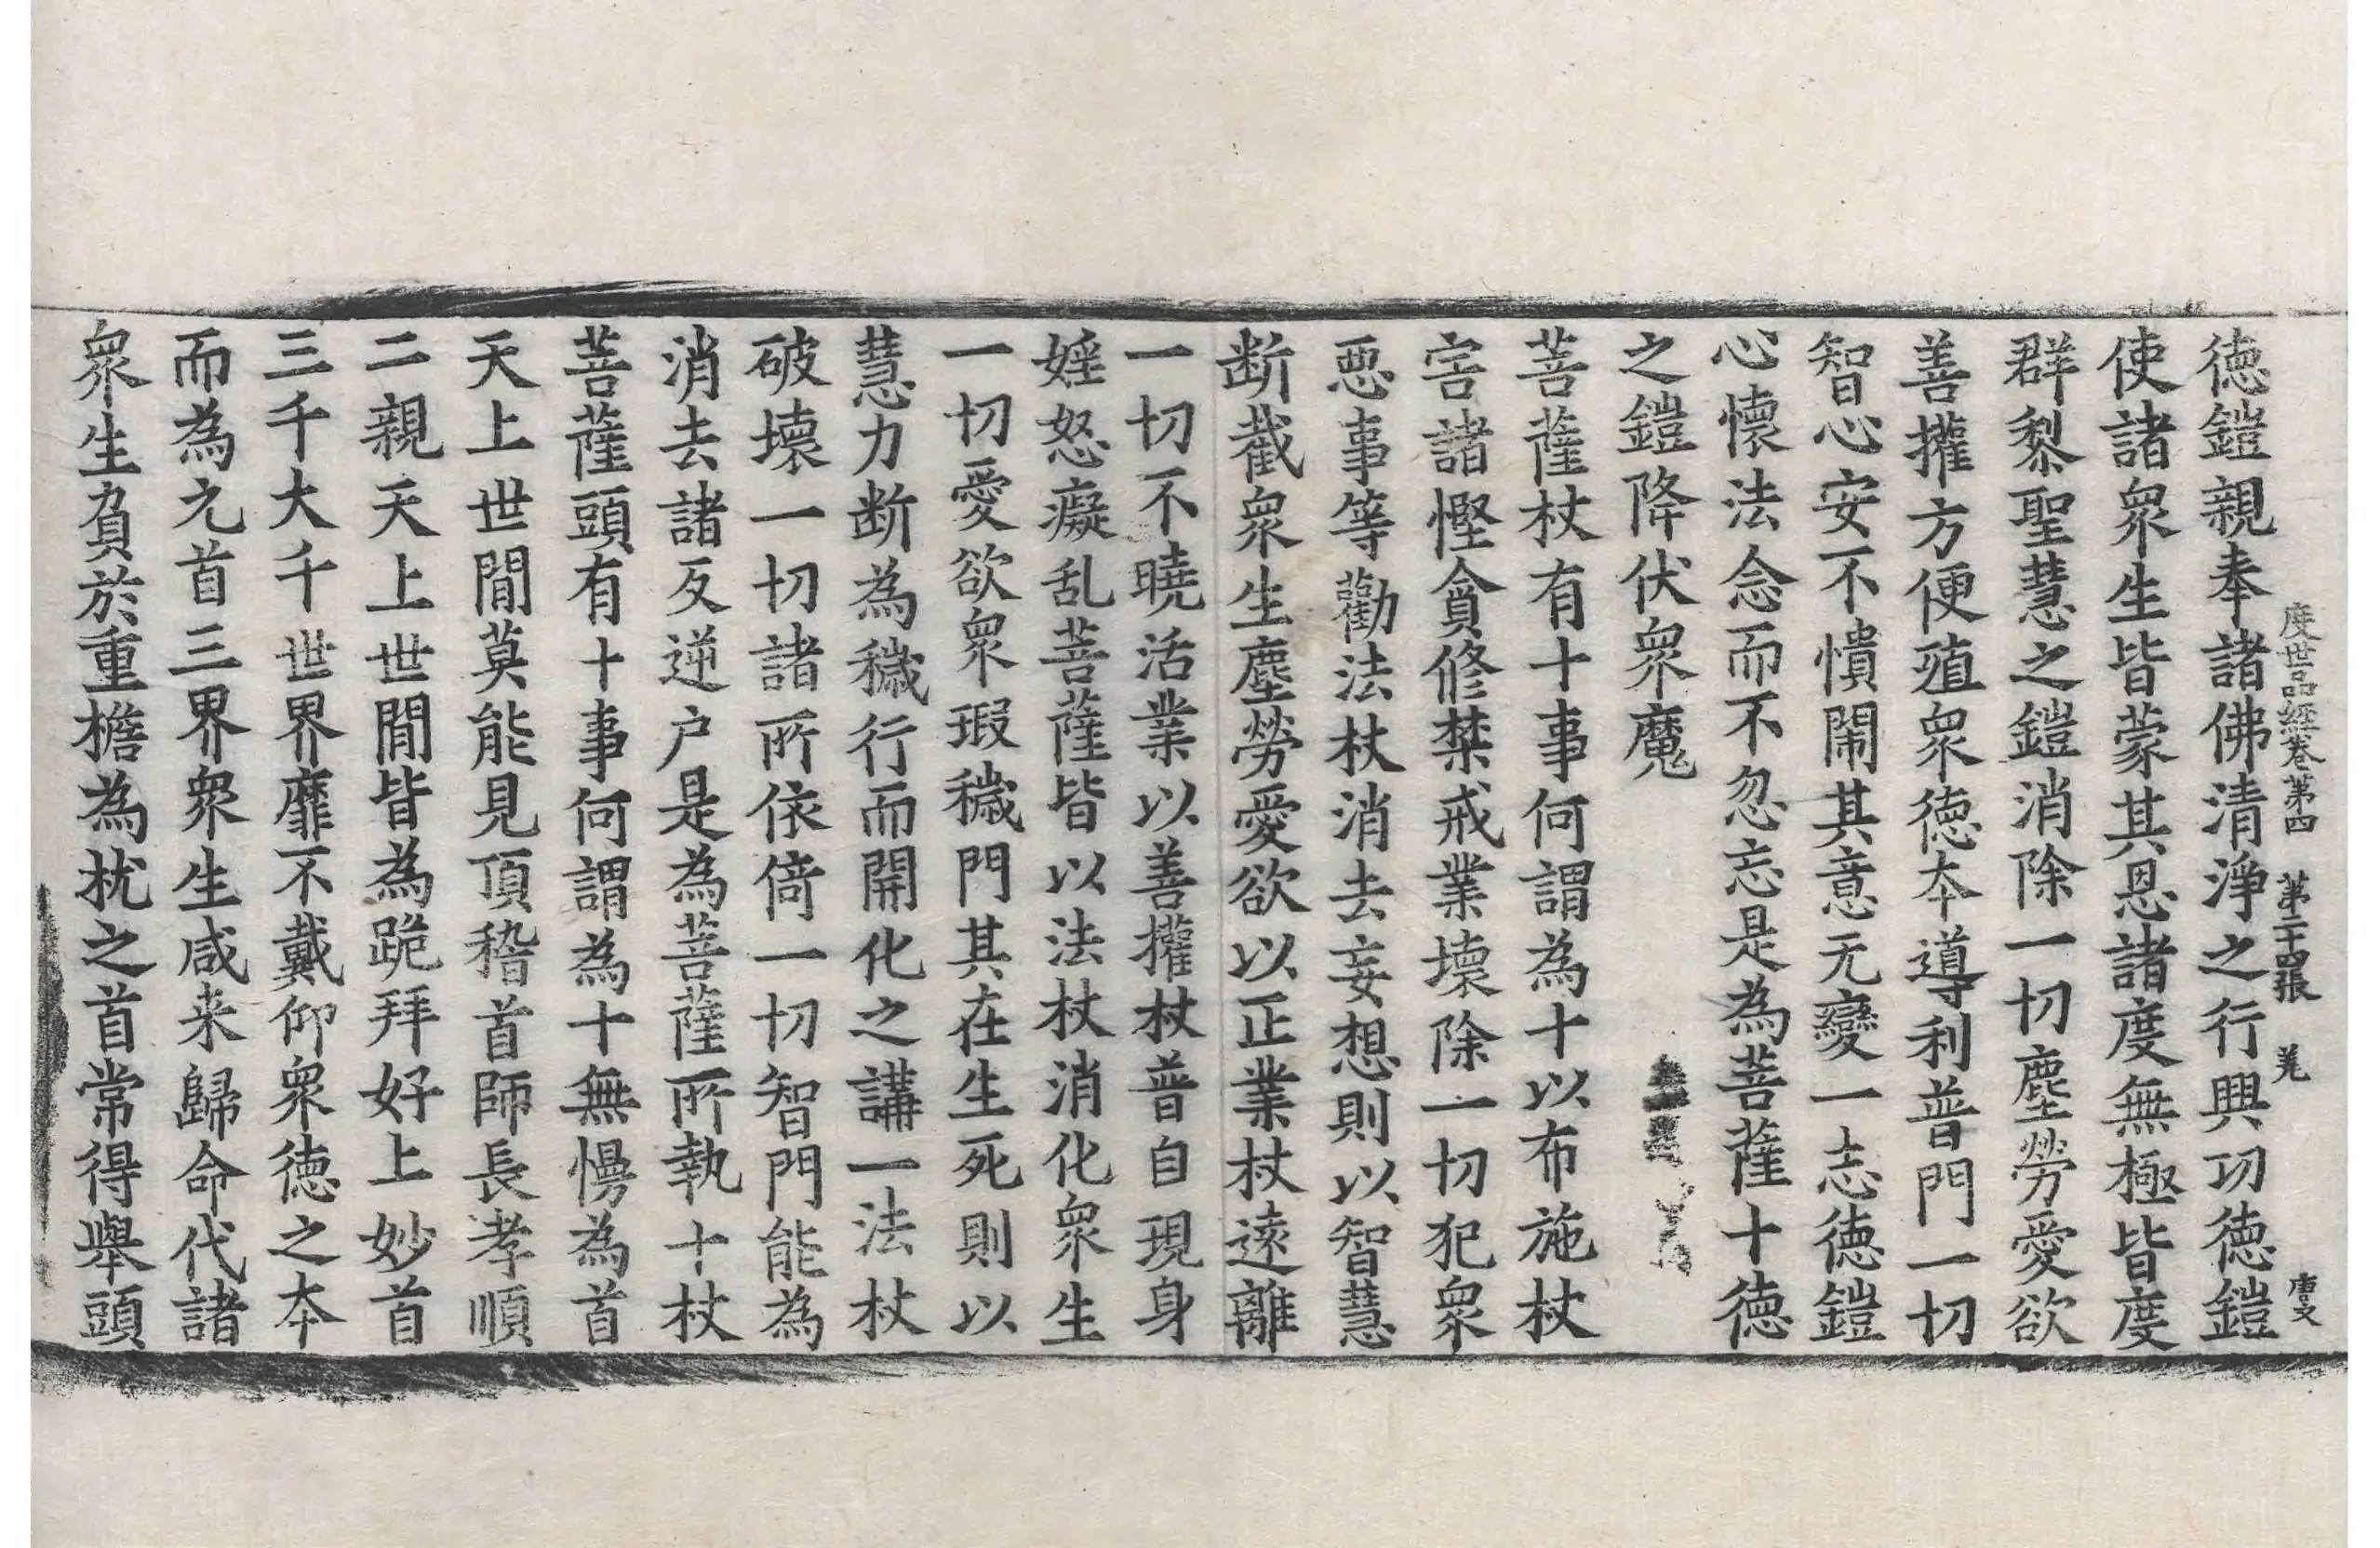 度世品經卷第四 第二十四張 羌 唐文
德鎧親奉諸佛清淨之行興功德鎧
使諸衆生皆蒙其恩諸度無極皆度
群黎聖慧之鎧消除一切塵勞愛欲
善權方便殖衆德本導利普門一切
智心安不憒閙其意无變一志德鎧
心懷法念而不忽忘是為菩薩十德
之鎧降伏衆魔
菩薩杖有十事何謂為十以布施杖
害諸慳貪修禁戒業壞除一切犯衆
惡事等勸法杖消去妄想則以智慧
断截衆生塵勞愛欲以正業杖遠離
一切不曉活業以善權杖普自現身
婬怒癡乱菩薩皆以法杖消化衆生
一切愛欲衆瑕穢門其在生死則以
慧力断為穢行而開化之講一法杖
破壞一切諸所依倚一切智門能為
消去諸反逆户是為菩薩所執十杖
菩薩頭有十事何謂為十無慢為首
天上世間莫能見頂稽首師長孝順
二親天上世間皆為跪拜好上妙首
三千大千世界靡不戴仰衆德之本
而為元首三界衆生咸来歸命代諸
衆生負於重檐為枕之首常得舉頭